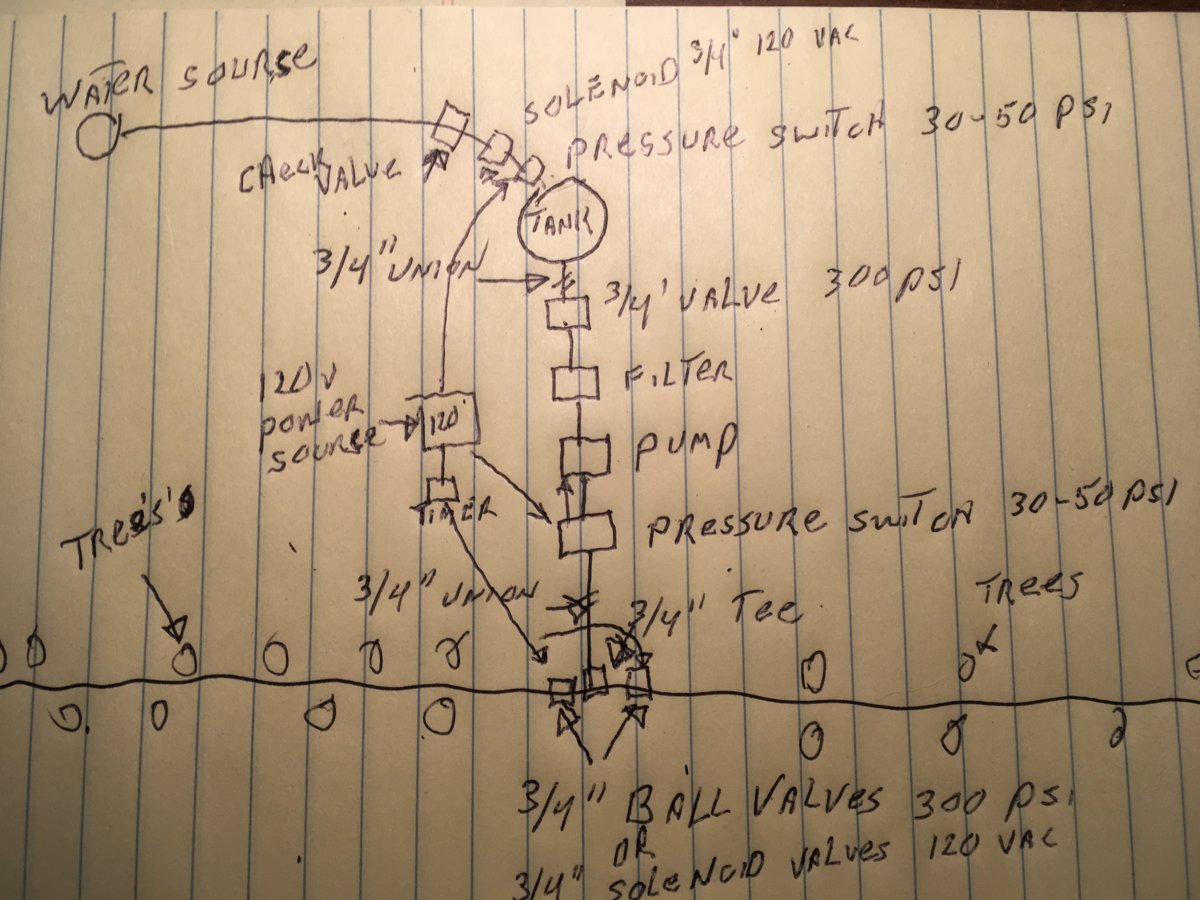 WATER SOURSE
SOLENOID 3/4" 120 VAC
CHECK VALVE
PRESSURE SWITCH 30-50 PSI
TANK
3/4" UNION
3/4' VALVE 300 PSI
120 V
POWER
SOURSE
120
FILTER
PUMP
TIMER
PRESSURE SWITCH 30-50 PSI
TREES'S
3/4" UNION
3/4" TEE
TREES
3/4" BALL VALVES 300 PSI
OR
3/4" SOLENOID VALVES 120 VAC